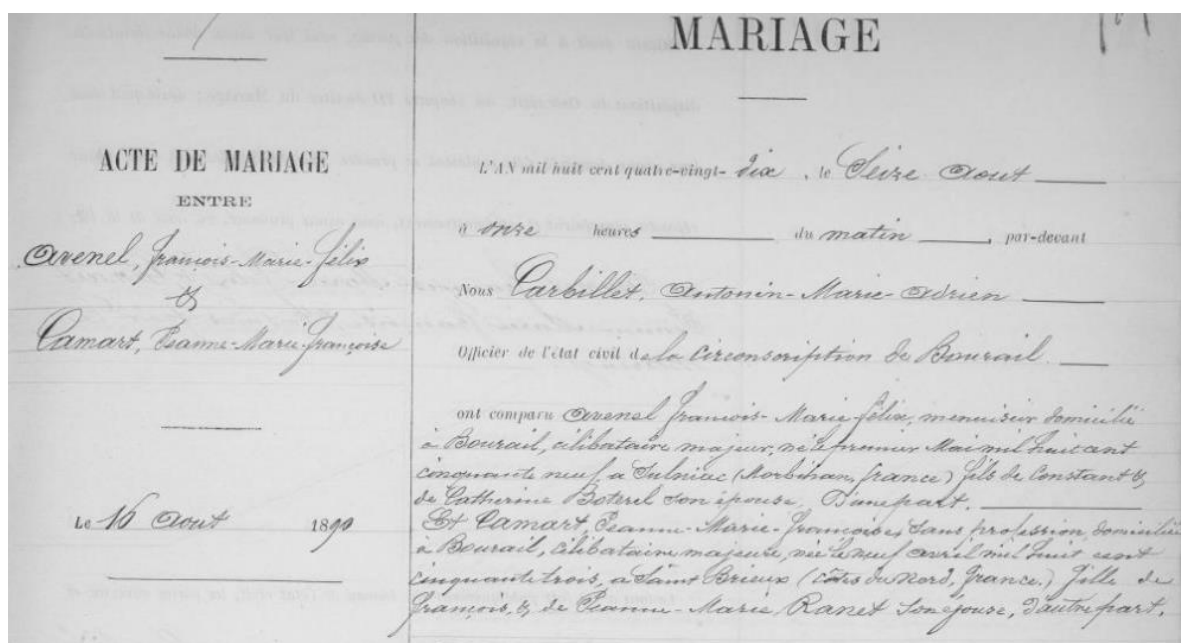 MARIAGE
ACTE DE MARIAGE
ENTRE
Avenel, François-Marie-Félix
&
Camart, Jeanne-Marie-Françoise
Le 16 Aout 1890
L'AN mil huit cent quatre-vingt- dix, le Seize Aout
à onze heures du matin, par-devant
Nous Carbillet, Antonin-Marie-Adrien
Officier de l'état civil de la Circonscription de Bourail.
ont comparu Avenel François-Marie-Félix, menuisier domicilié
à Bourail, célibataire majeur, né le premier Mai mil huit cent
cinquante neuf, à Sulniac (Morbihan, france) fils de Constant &
de Catherine Boterel son épouse, D'une part.
Et Camart, Jeanne-Marie-Françoise, Sans profession, domiciliée
à Bourail, célibataire majeure, née le neuf avril mil huit cent
cinquante trois, à Saint Brieux (Côtes du Nord, france.) fille de
françois, & de Jeanne-Marie Ranet son épouse, d'autre part.